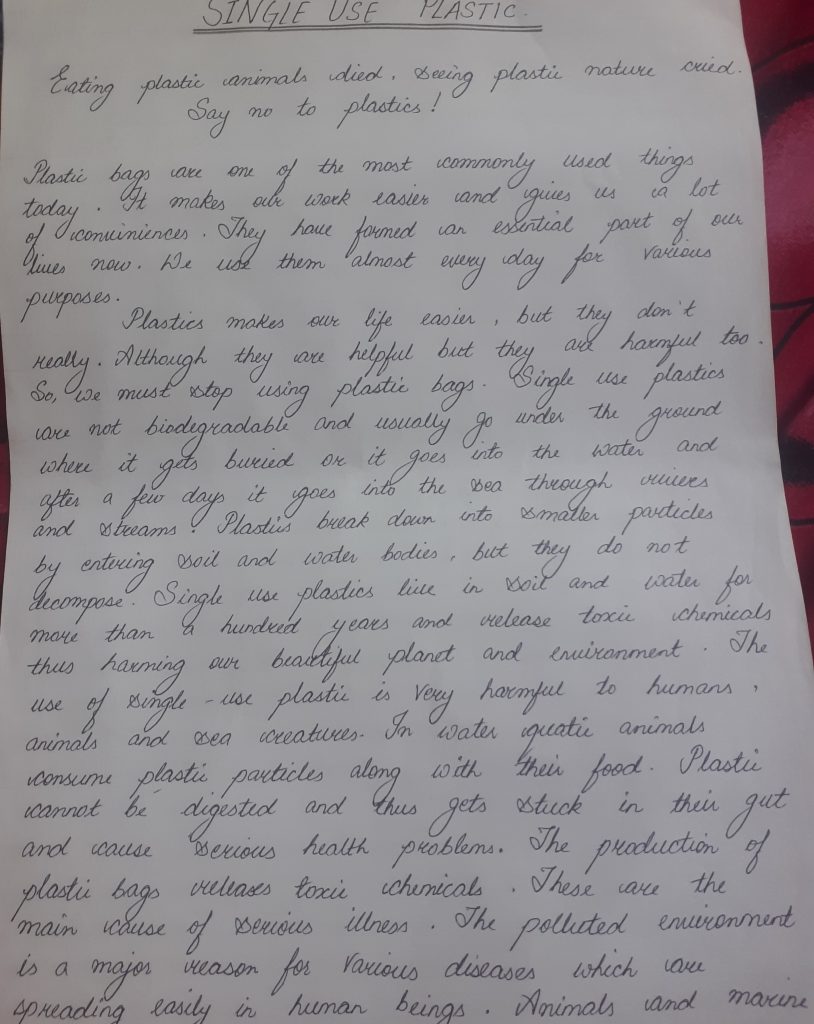 SINGLE USE PLASTIC.
Eating plastic animals died, seeing plastic nature cried.
Say no to plastics!
Plastic bags are one of the most commonly used things
today. It makes our work easier and gives us a lot
of conviniences. They have formed an essential part of our
lives now. We use them almost every day for various
purposes.
Plastics makes our life easier, but they don't
really. Although they are helpful but they are harmful too.
So, we must stop using plastic bags. Single use plastics
are not biodegradable and usually go under the ground
where it gets buried or it goes into the water and
after a few days it goes into the sea through rivers
and streams. Plastics break down into smaller particles
by entering soil and water bodies, but they do not
decompose. Single use plastics live in soil and water for
more than a hundred years and release toxic chemicals
thus harming our beautiful planet and environment. The
use of single-use plastic is very harmful to humans,
animals and sea creatures. In water quatic animals
consume plastic particles along with their food. Plastic
cannot be digested and thus gets stuck in their gut
and cause serious health problems. The production of
plastic bags releases toxic chemicals. These are the
main cause of serious illness. The polluted environment
is a major reason for various diseases which are
spreading easily in human beings. Animals and marine